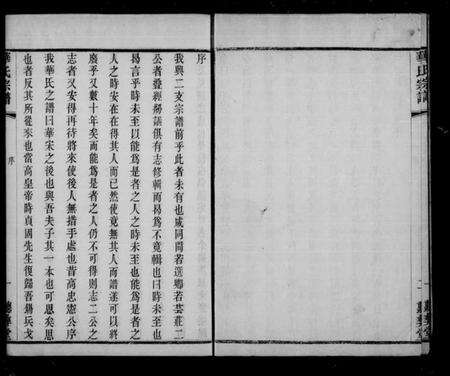 序
我與二支宗譜前乎此者未有也咸同間若選鄉若芸莊二
公者發經營話俱有志修輯而曷爲不竟輯也曰時未至也
曷言乎時未至以能爲是者之人之時未至也能爲是者之
人之時安在在得其人而已然使竟無其人而譜遂可以終
廢乎又數十年矣而能爲是者之人仍不可得則志二公之
志者又安得再待將來使後人無措手處也昔高忠憲公序
我華氏之譜曰華宋之後也與吾夫子其一本也可思矣思
也者反其所從來也當高皇帝時貞國先生復歸吾錫兵戈
華氏宗譜
序
一
華氏宗譜